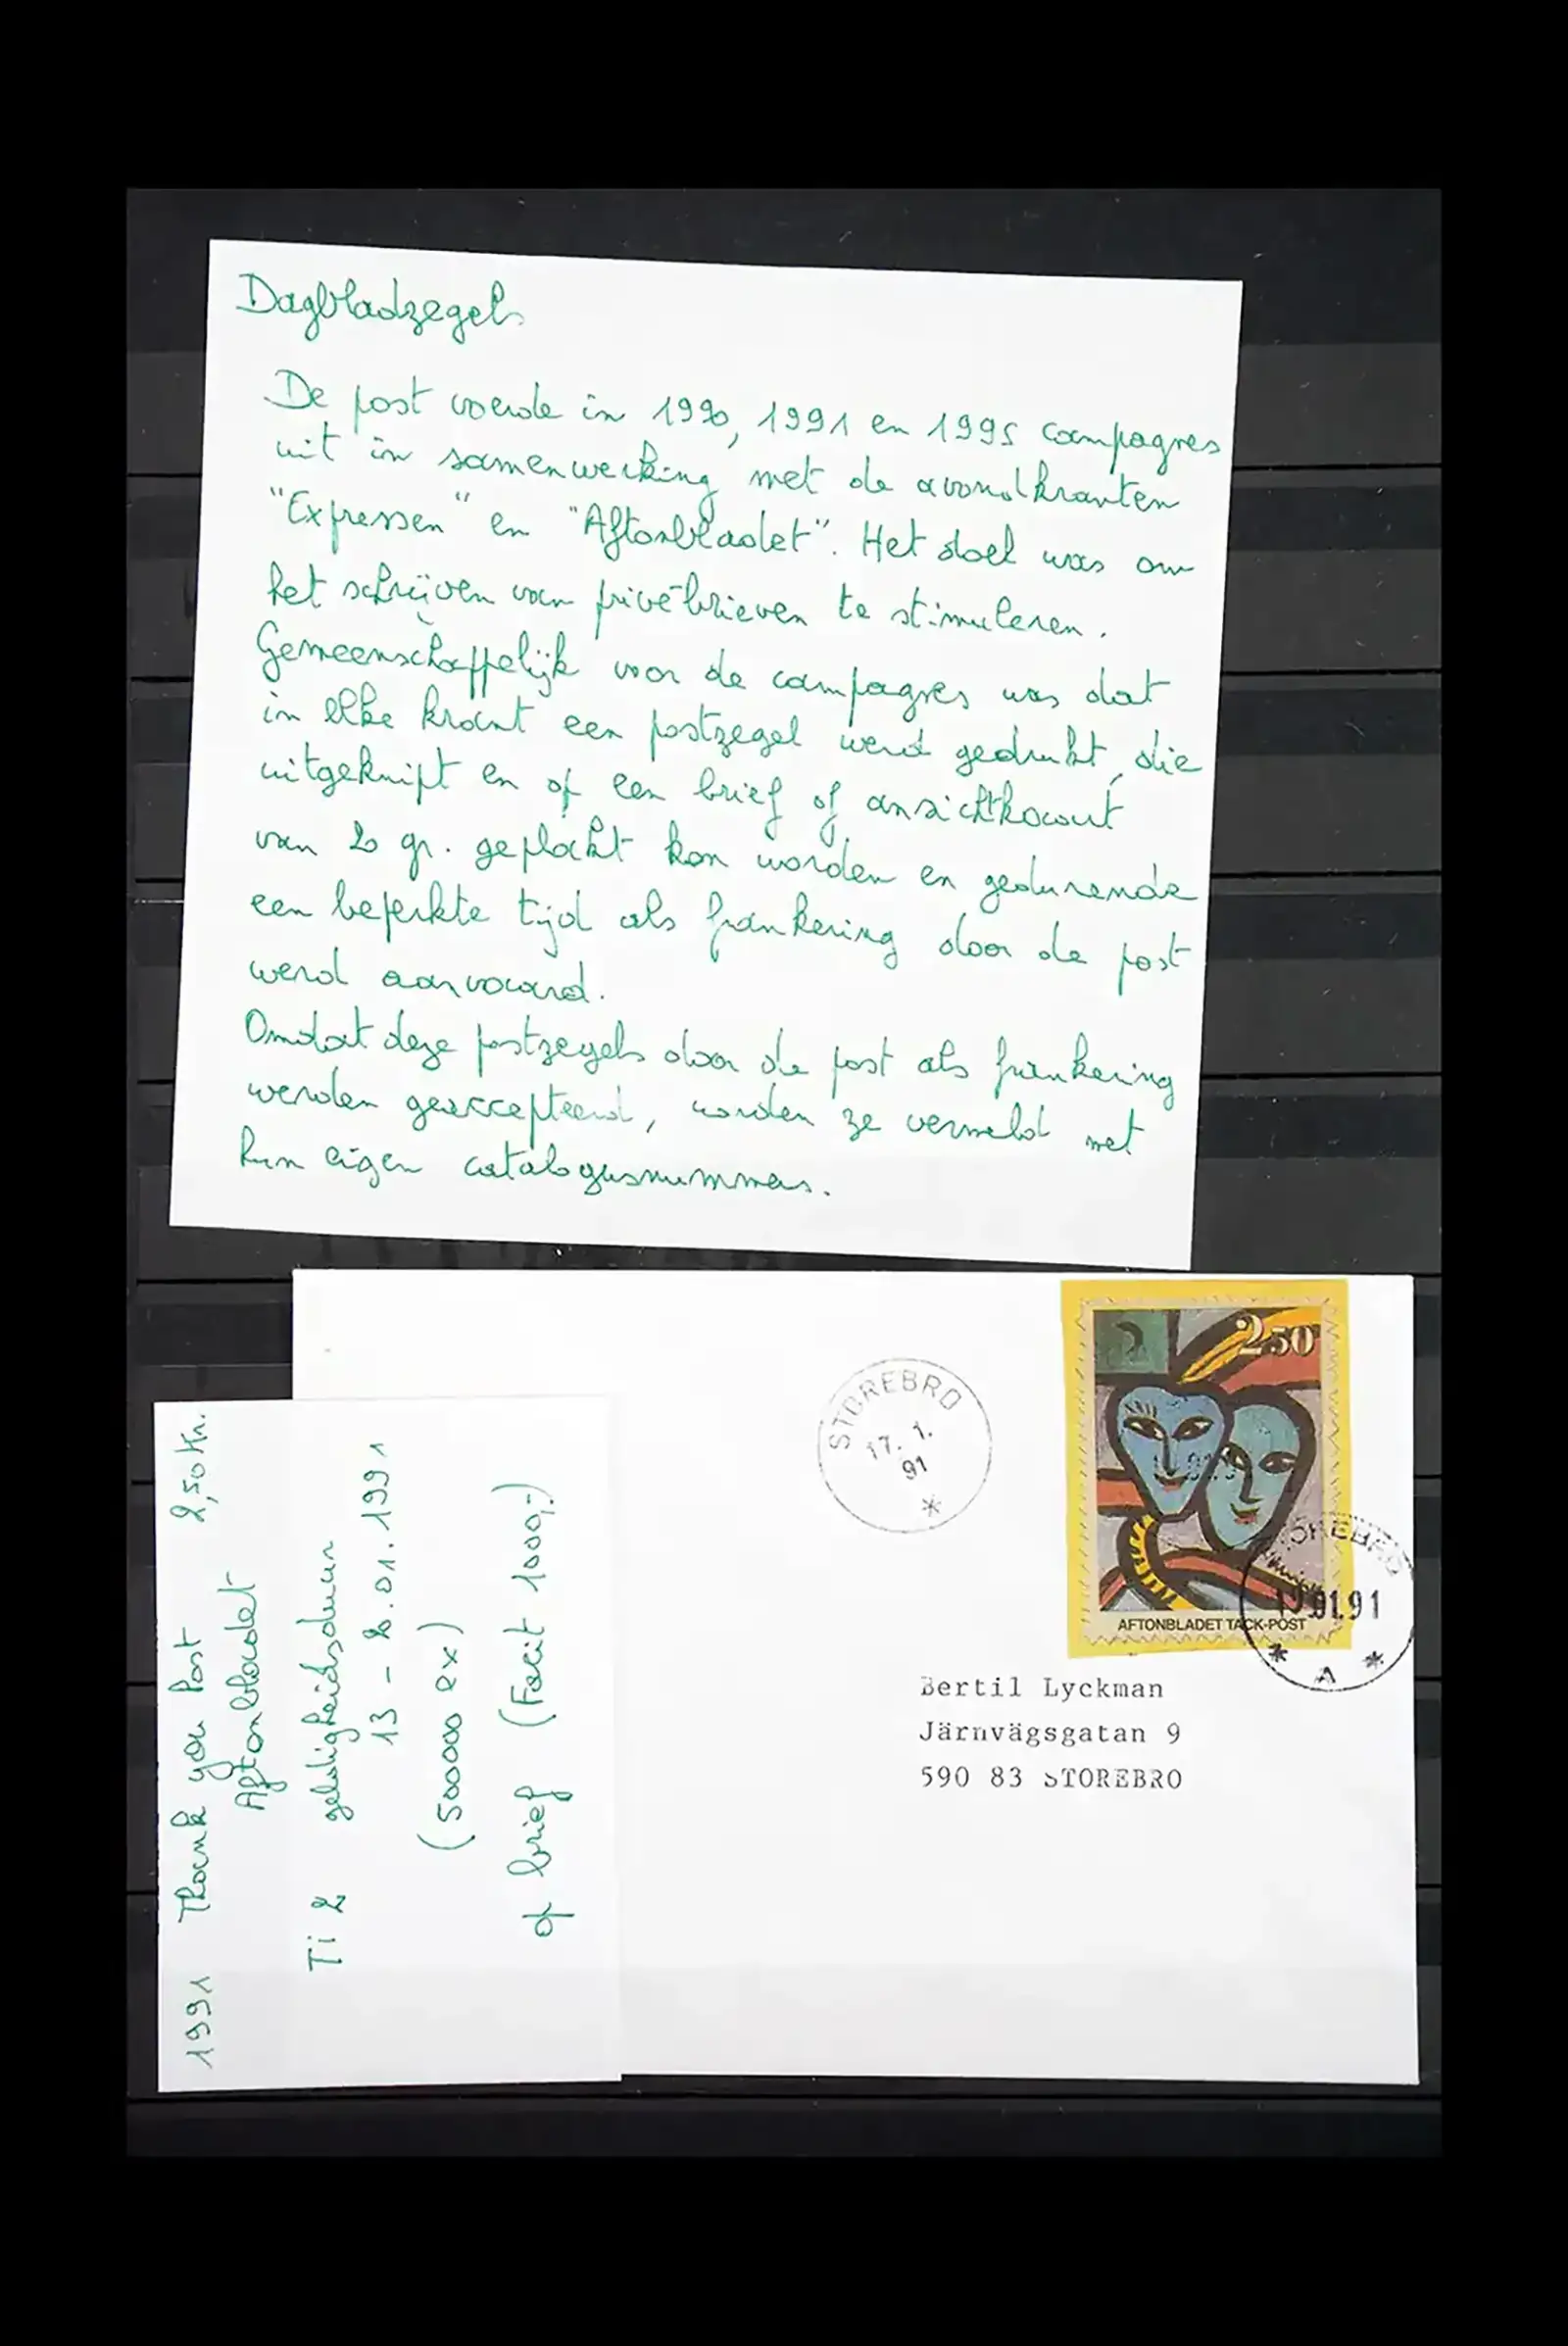 Dagbladzegels
De post voerde in 1990, 1991 en 1995 campagnes
uit in samenwerking met de avondkranten
"Expressen" en "Aftonbladet". Het doel was om
het schrijven van privé-brieven te stimuleren.
Gemeenschappelijk voor de campagnes was dat
in elke krant een postzegel werd gedrukt, die
uitgeknipt en op een brief of ansichtkaart
van 20 gr. geplakt kon worden en gedurende
een beperkte tijd als frankering door de post
werd aanvaard.
Omdat deze postzegels door de post als frankering
werden geaccepteerd, worden ze vermeld met
hun eigen catalogusnummers.
2 50
AFTONBLADET TACK-POST
STOREBRO
17. 1.
91
STOREBRO
01.91
A
Bertil Lyckman
Järnvägsgatan 9
590 83 STOREBRO
1991 Thank you Post 2,50 Kr.
Aftonbladet
Ti 2 geldigheidsduur
13 - 20.01.1991
(500000 ex)
op brief (Facit 1000,-)